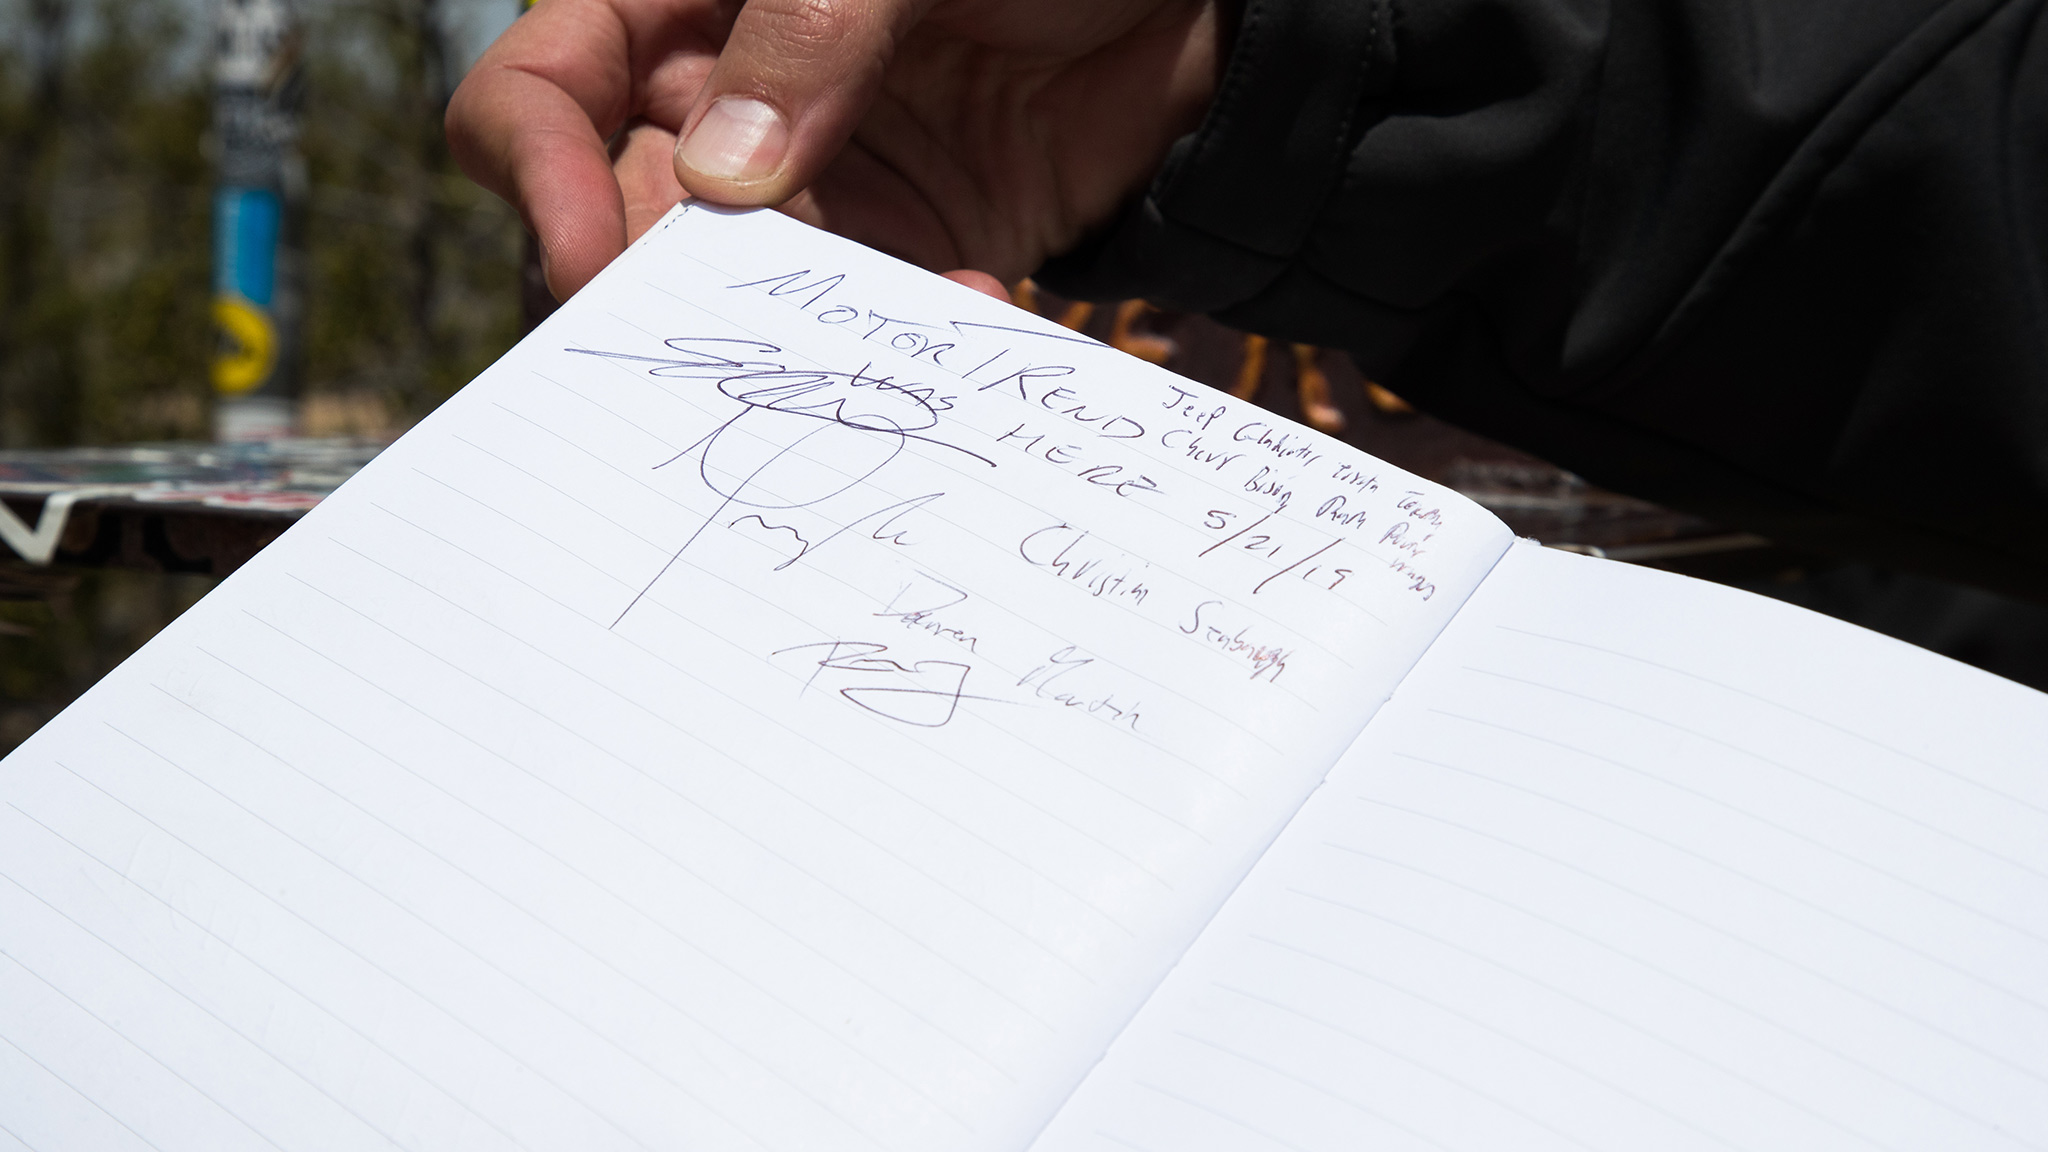 MOTORTREND
WAS HERE 5/21/19
Jeep Gladiator, Toyota Tacoma,
Chevy Bison, Ram Power Wagon
Christian Seabaugh
Darren Martin